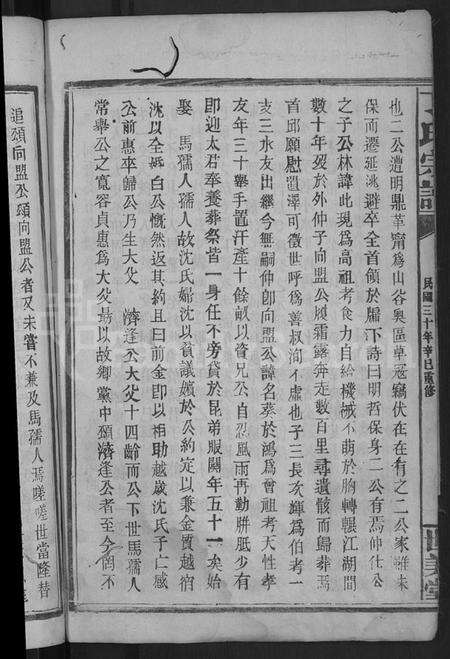 丁氏宗譜
民國三十年辛巳重修
世美堂
也二公遭明鼎革竄爲山谷奧區草冠竊伏在在有之二公家雖未
保而遷延洮避卒全首領於牖下詩曰明哲保身二公有焉仲仕公
之子公林諱此現爲高祖考食力自給機械不萌於胸轉輾江湖間
數十年歿於外仲子向盟公履霜露奔走數百里尋遺骸而歸葬焉
首邱願慰溫澤可徵世呼爲善叔洵不虛也子三長汝輝爲伯考一
支三永友出繼今無嗣仲卽向盟公諱名葵於鴻爲曾祖考天性孝
友年三十舉手置汙產十餘畝以資兄公自忍風雨再動胼胝少有
卽迎太君奉養葬祭皆一身任不旁貸於昆弟服闋年五十一矣始
娶 馬孺人孺人故沈氏婦沈以貧議嬪於公約定以兼金質越宿
沈以全婚白公慨然返其約且曰前金卽以相助越歲沈氏子亡感
公前惠卒歸公乃生大父 濟逢公大父十四齡而公下世馬孺人
常舉公之寬容貞惠爲大父勗以故鄉黨中頌濟逢公者至今尙不
追頌向盟公頌向盟公者又未嘗不兼及馬孺人焉嗟嗟世當隆替